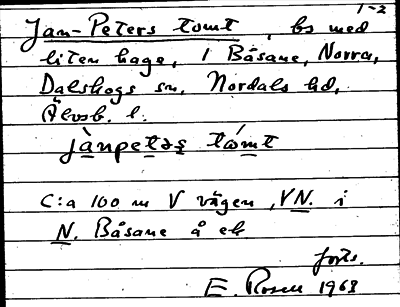 1-2
Jan-Peters tomt, bs med
liten hage, i Båsane, Norra,
Dalskogs sn, Nordals hd,
Älvsb. l.
jànpetəs tómt
C:a 100 m V vägen, VN. i
N. Båsane å ek
forts.
E. Rosell 1963